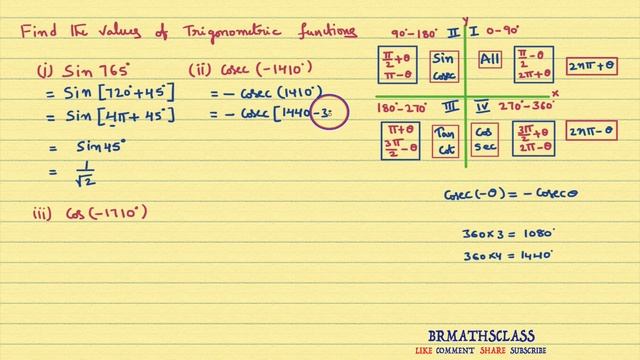 Find the values of Trigonometric functions
(i) Sin 765°
= Sin [720°+45°]
= Sin [4π + 45°]
= Sin45°
= 1/√2
(ii) Cosec (-1410°)
= - Cosec (1410°)
= - Cosec [1440-3
iii) Cos (-1710°)
y
90°-180° II I 0-90°
π/2+θ
π-θ
Sin
Cosec
All
π/2-θ
2π+θ
2nπ+θ
x
180°-270° III IV 270°-360°
π+θ
3π/2-θ
Tan
Cot
Cos
Sec
3π/2+θ
2π-θ
2nπ-θ
Cosec(-θ) = - Cosecθ
360×3 = 1080°
360×4 = 1440°
BRMATHSCLASS
LIKE COMMENT SHARE SUBSCRIBE